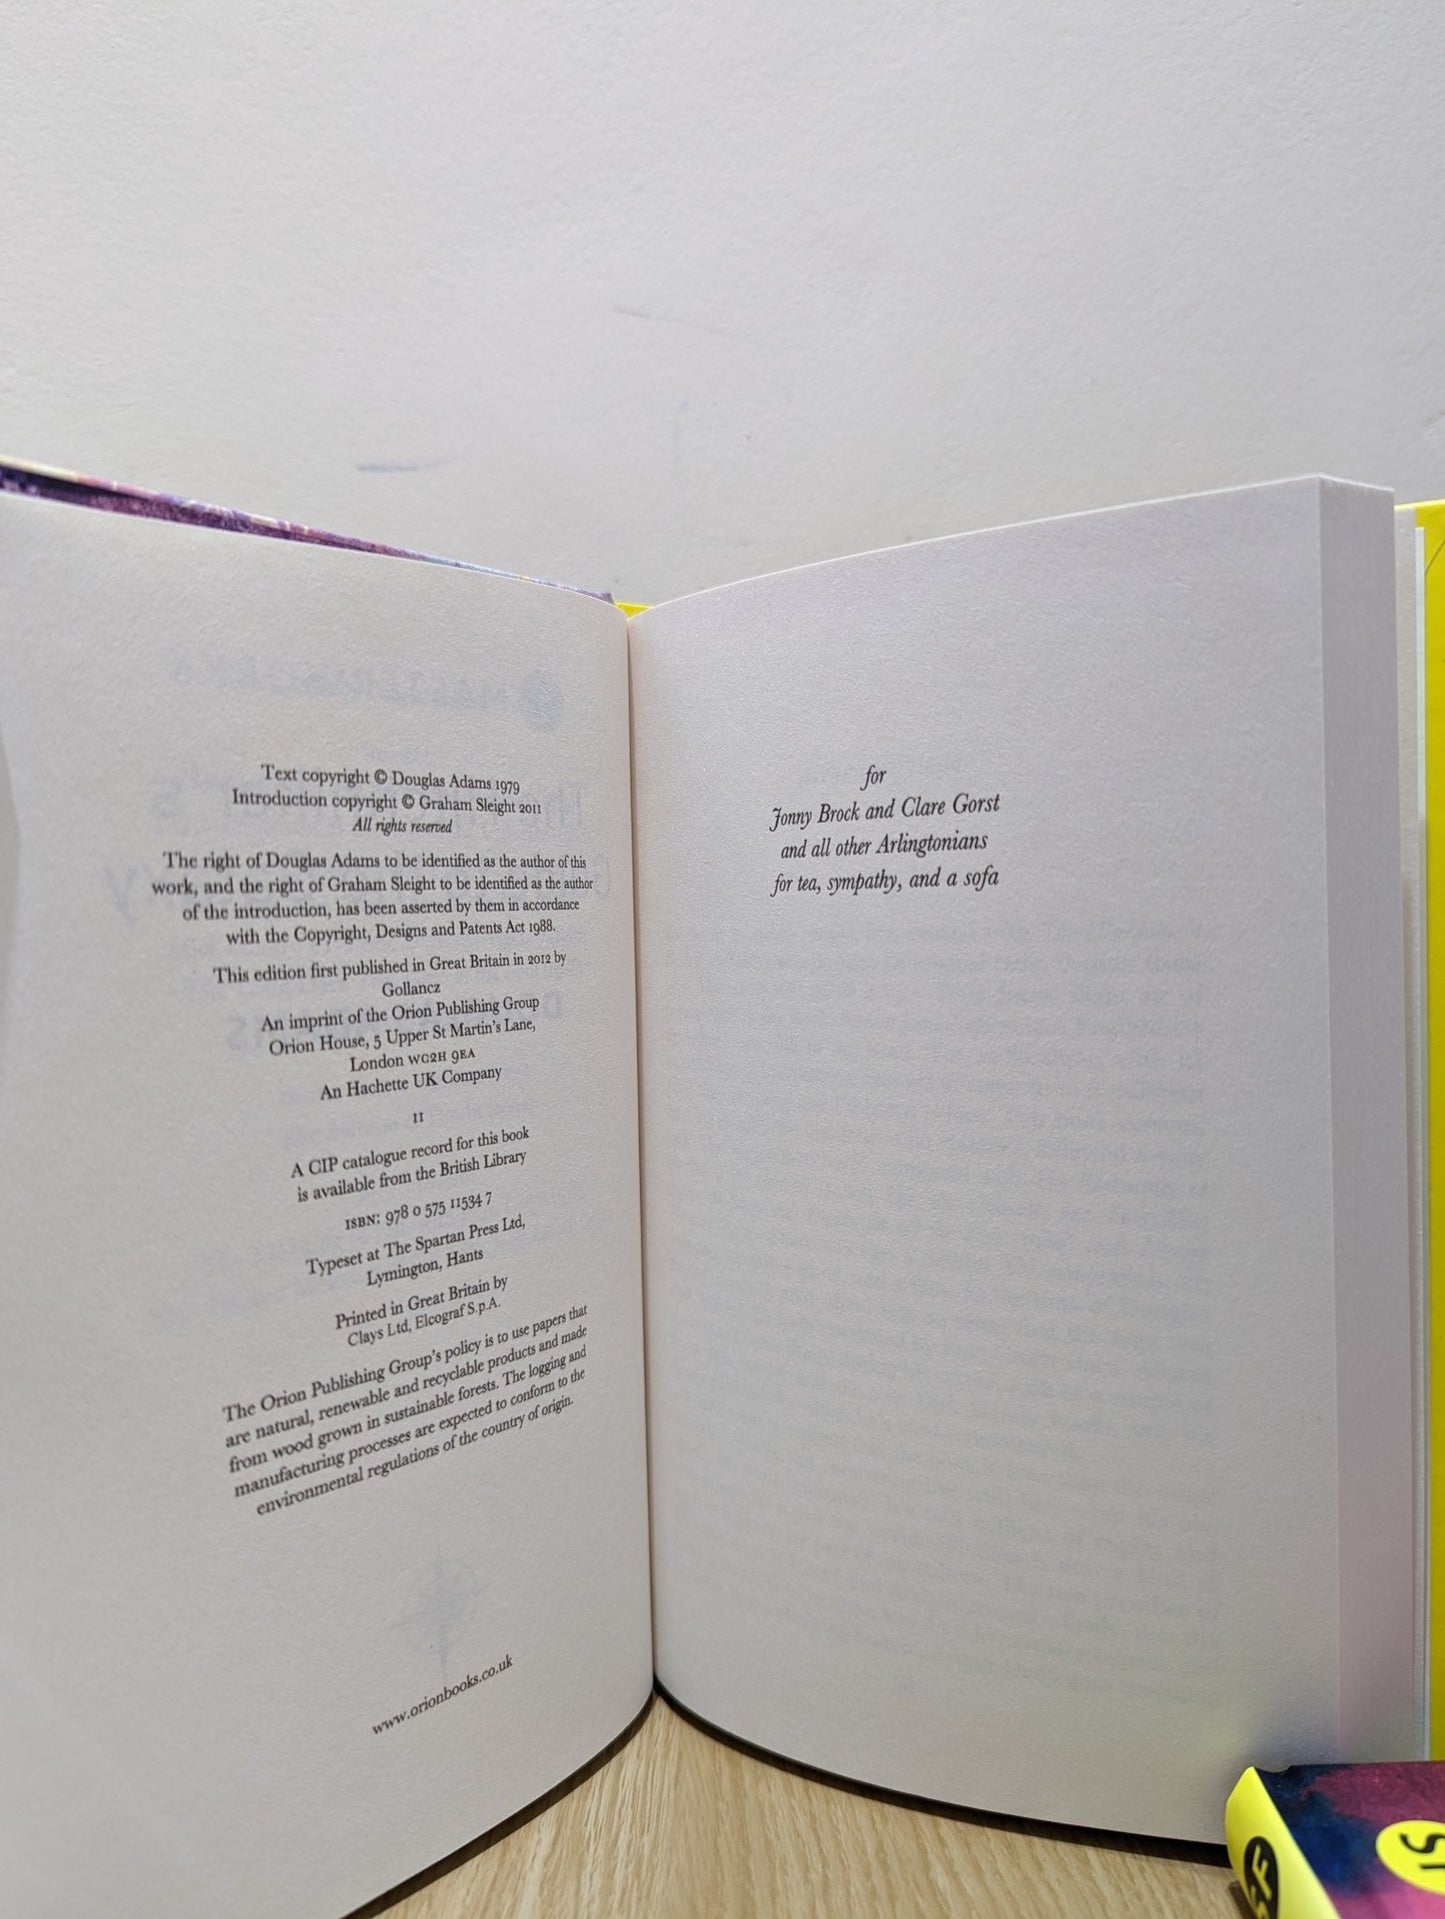 Text copyright © Douglas Adams 1979
Introduction copyright © Graham Sleight 2011
All rights reserved
The right of Douglas Adams to be identified as the author of this
work, and the right of Graham Sleight to be identified as the author
of the introduction, has been asserted by them in accordance
with the Copyright, Designs and Patents Act 1988.
This edition first published in Great Britain in 2012 by
Gollancz
An imprint of the Orion Publishing Group
Orion House, 5 Upper St Martin's Lane,
London WC2H 9EA
An Hachette UK Company
11
A CIP catalogue record for this book
is available from the British Library
ISBN: 978 0 575 11534 7
Typeset at The Spartan Press Ltd,
Lymington, Hants
Printed in Great Britain by
Clays Ltd, Elcograf S.p.A.
The Orion Publishing Group's policy is to use papers that
are natural, renewable and recyclable products and made
from wood grown in sustainable forests. The logging and
manufacturing processes are expected to conform to the
environmental regulations of the country of origin.
www.orionbooks.co.uk
for
Jonny Brock and Clare Gorst
and all other Arlingtonians
for tea, sympathy, and a sofa